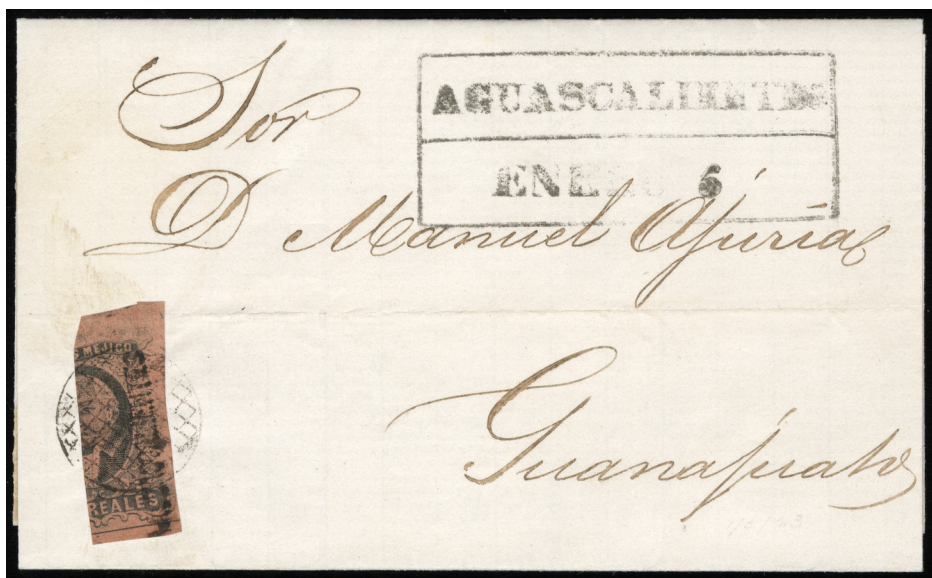 Sor
AGUASCALIENTES
ENERO 6
D Manuel Ajuria
MEJICO
REALES
Guanajuato